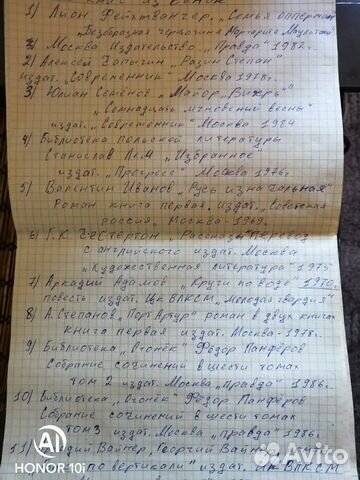 книг из серии
1) Лион Фейхтвангер, „Семья опперман"
„Безобразная герцогиня Маргарита Маульташ"
Москва Издательство „Правда" 1982г.
2) Алексей Чапыгин „Разин Степан"
издат. „Современник" Москва 1978г.
3) Юлиан Семёнов „Майор „Вихрь"
„Семнадцать мгновений весны"
издат. „Современник" Москва 1984
4) Библиотека польской литературы
Станислав Лем „Избранное"
издат. „Прогресс" Москва 1976г.
5) Валентин Иванов „Русь изначальная"
Роман книга первая. Издат. „Советская
россия. Москва - 1969.
6) Г.К Честертон „Рассказы" Перевод
с английского издат. Москва
„Художественная литература" 1975
7) Аркадий Адамов „Круги по воде" 1970г.
повесть издат. Цк ВЛКСМ „Молодая гвардия"
8) А.Степанов „Порт Артур" роман в двух книгах
книга первая издат. Москва - 1978г.
9) Библиотека „Огонёк" Фёдор Панфёров
Собрание сочинений в шести томах
том 2 издат. Москва „Правда" 1986г.
10) Библиотека „Огонёк" Фёдор Панфёров
Собрание сочинений в шести томах
том 3 издат. Москва „Правда" 1986г.
11) Аркадий Вайнер, Георгий Вайнер
по вертикали" издат. Цк ВЛКСМ
AI
HONOR 10i
Avito